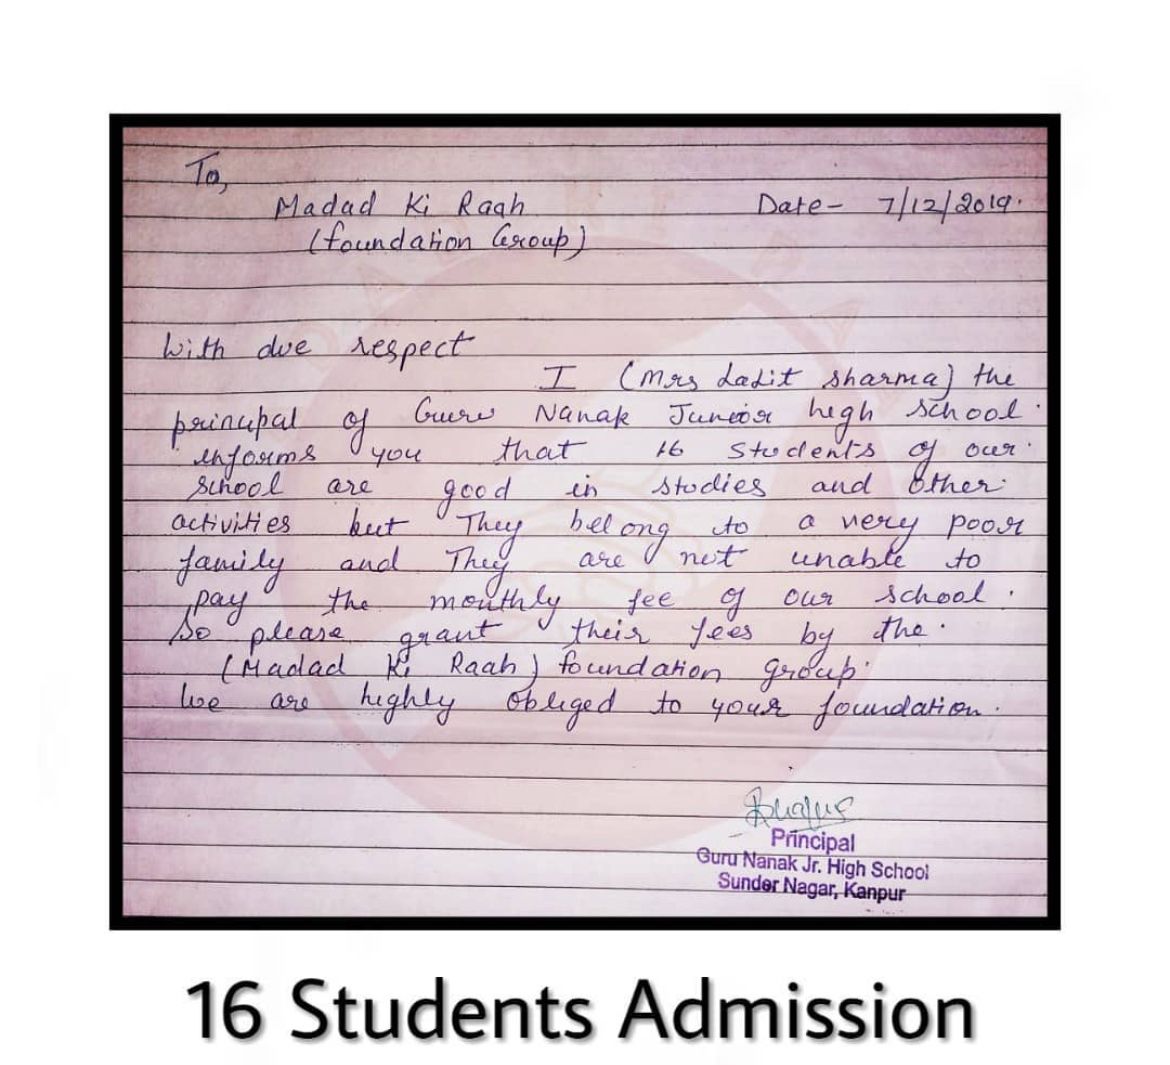 To,
Madad Ki Raah
Date- 7/12/2019.
(foundation Group)
With due respect
I (Mrs Lalit sharma) the
principal of Guru Nanak Junior high school
informs you that 16 students of our
school are good in studies and other
activities but They belong to a very poor
family and They are not unable to
pay the monthly fee of our school.
So please grant their fees by the
(Madad Ki Raah) foundation group.
We are highly obliged to your foundation.
Principal
Guru Nanak Jr. High School
Sunder Nagar, Kanpur
16 Students Admission